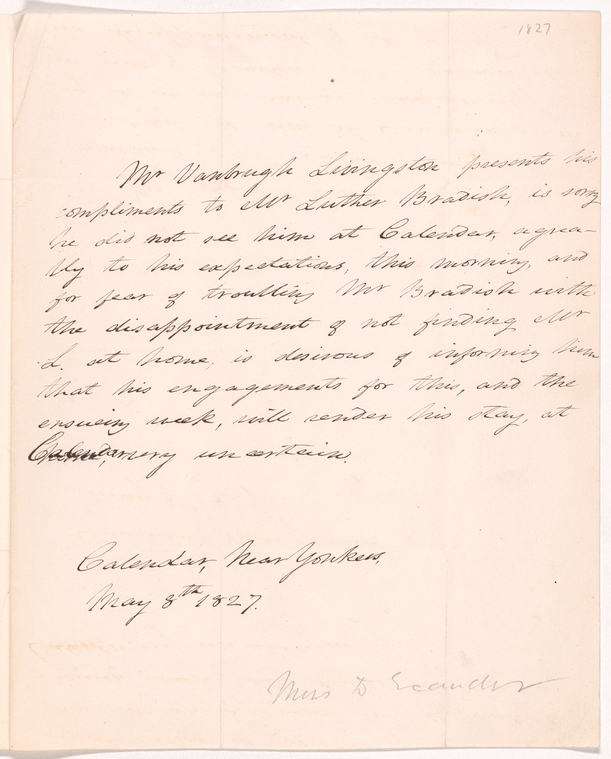 1827
Mr Vanbrugh Livingston presents his
compliments to Mr Luther Bradish, is sorry
he did not see him at Calendar, agrea-
bly to his expectations, this morning, and
for fear of troubling Mr Bradish with
the disappointment of not finding Mr
L. at home, is desirous of informing him
that his engagements for this, and the
ensueing week, will render his stay, at
Calendar, very uncertain.
Calendar, Near Yonkers,
May 8th 1827.